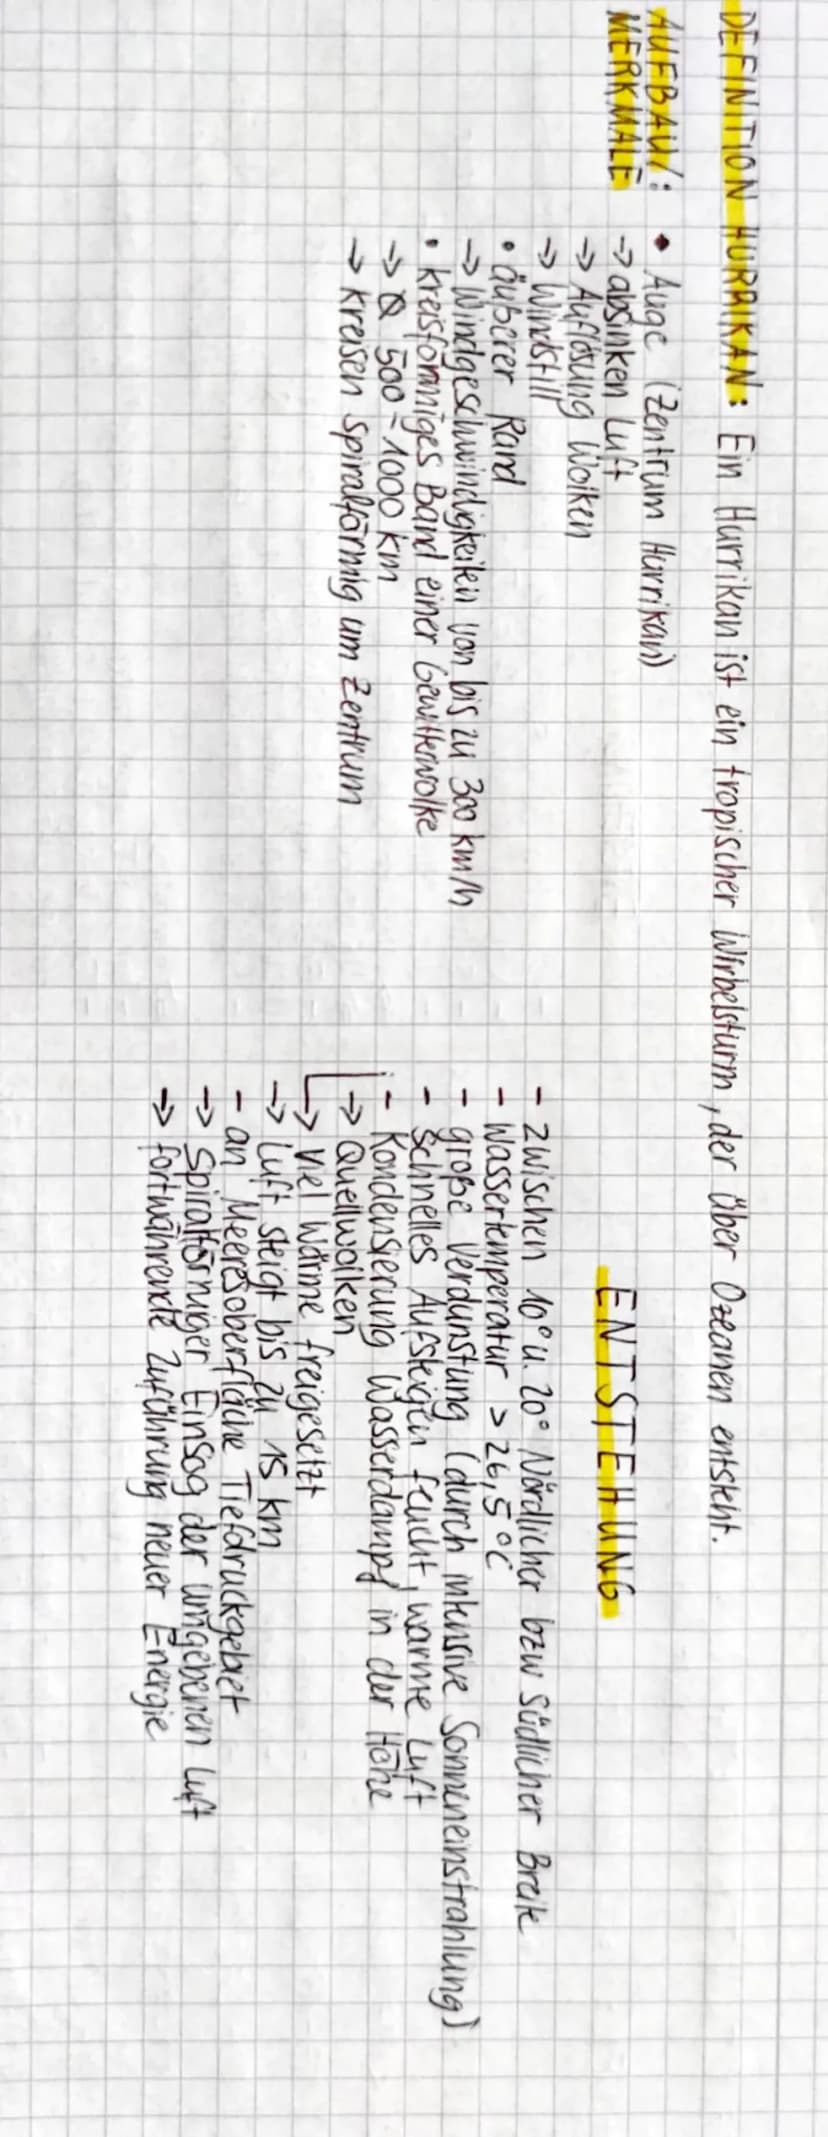 DEFINITION HURRIKAN: Ein Hurrikan ist ein tropischer Wirbelsturm, der über Ozeanen entsteht.
AUFBAU/:
MERKMALE
• Auge (Zentrum Hurrikan)
→ absinken Luft
→ Auflösung Wolken
→ Windstill
• äußerer Rand
→ Windgeschwindigkeiten von bis zu 300 km/h
• kreisförmiges Band einer Gewitterwolke
→ Ø 500-1000 km
→ kreisen spiralförmig um Zentrum
ENTSTEHUNG
- zwischen 10° u. 20° Nördlicher bzw südlicher Breite
- Wassertemperatur > 26,5°C
- große Verdunstung (durch intensive Sonneneinstrahlung)
- Schnelles Aufsteigen feucht, warme Luft
- Kondensierung Wasserdampf in der Höhe
→ Quellwolken
→ viel Wärme freigesetzt
→ Luft steigt bis zu 15 km
- an Meeresoberfläche Tiefdruckgebiet
→ Spiralförmiger Einsog der umgebenen Luft
→ fortwährende Zuführung neuer Energie